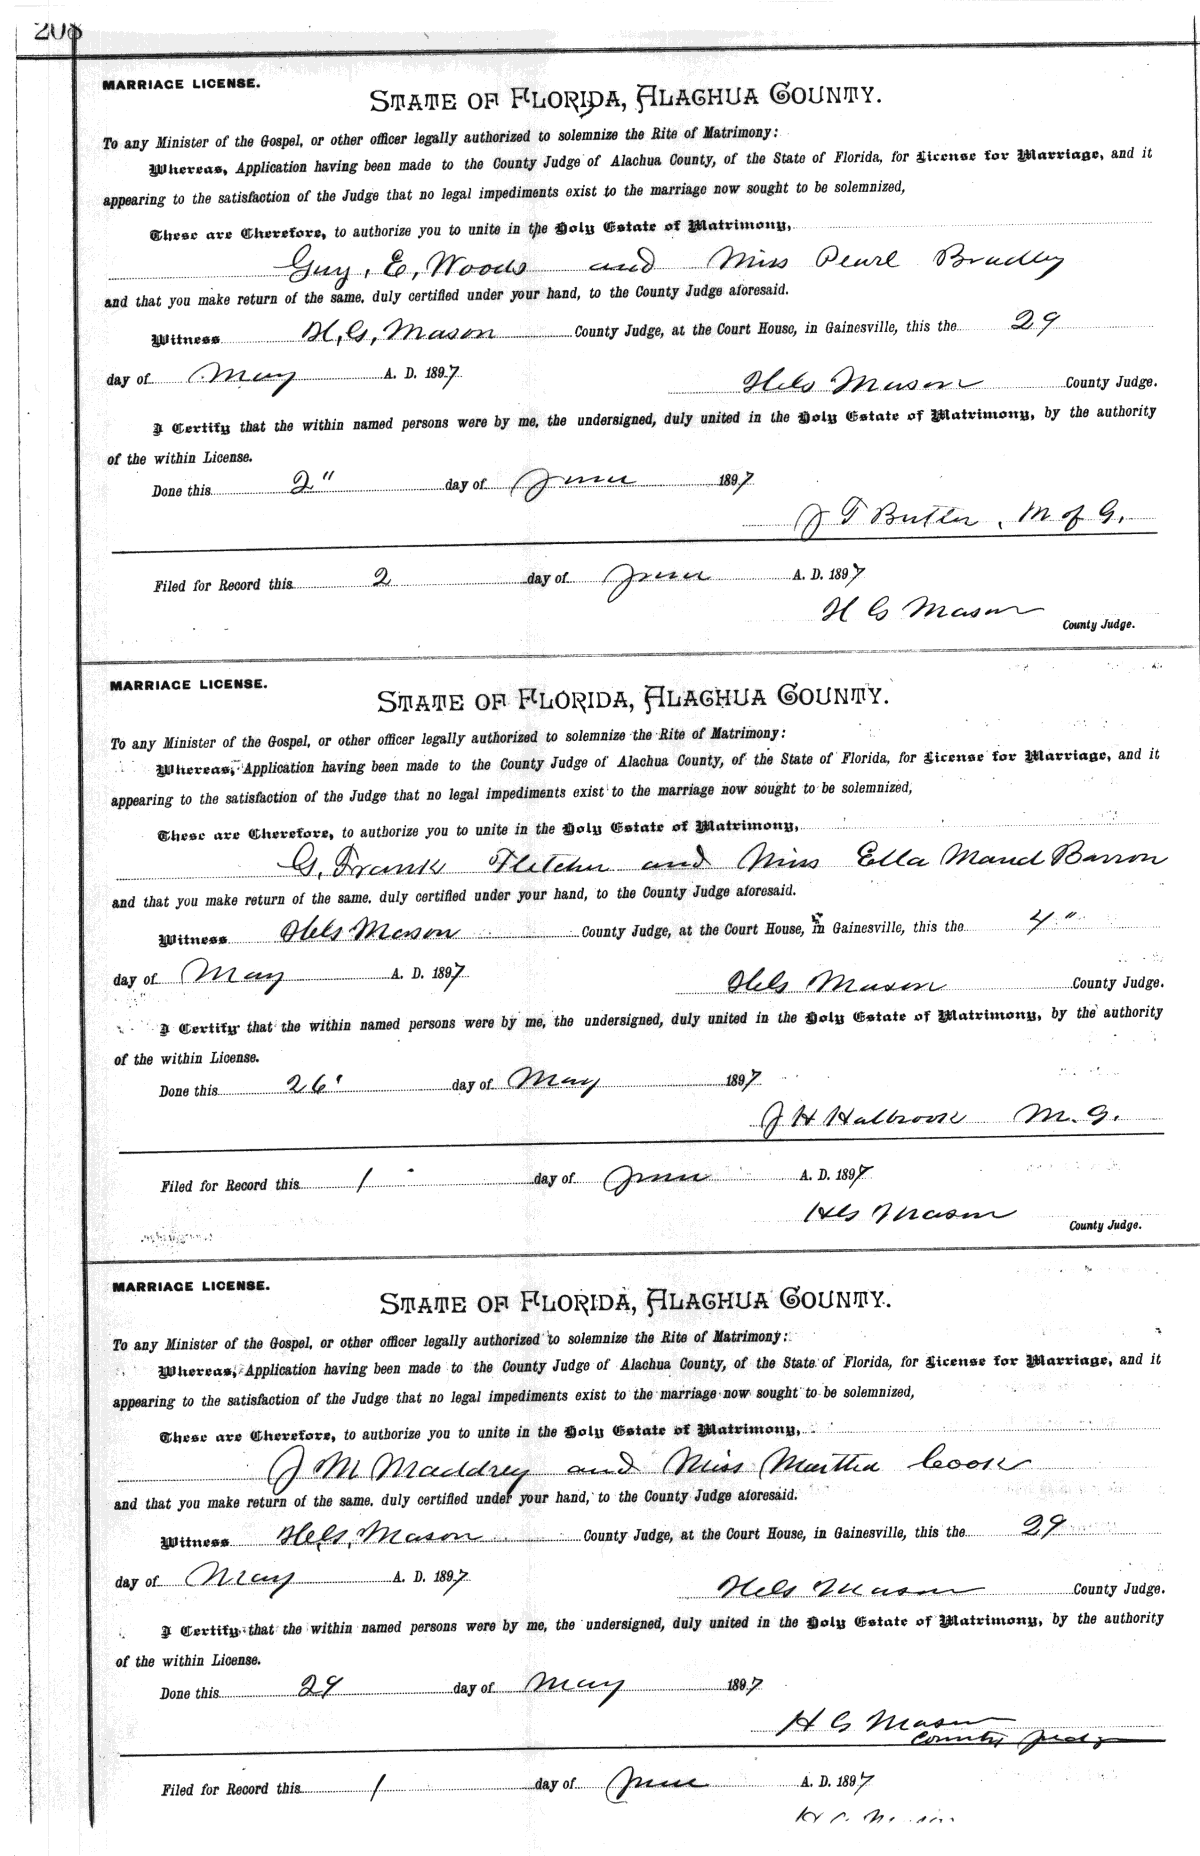 208
MARRIAGE LICENSE.
STATE OF FLORIDA, ALACHUA COUNTY.
To any Minister of the Gospel, or other officer legally authorized to solemnize the Rite of Matrimony:
Whereas, Application having been made to the County Judge of Alachua County, of the State of Florida, for License for Marriage, and it
appearing to the satisfaction of the Judge that no legal impediments exist to the marriage now sought to be solemnized,
These are Therefore, to authorize you to unite in the Holy Estate of Matrimony,
Guy, E, Woods and Miss Pearl Bradley
and that you make return of the same, duly certified under your hand, to the County Judge aforesaid.
Witness H, G, Mason County Judge, at the Court House, in Gainesville, this the 29
day of May A. D. 1897
H G Mason County Judge.
I Certify that the within named persons were by me, the undersigned, duly united in the Holy Estate of Matrimony, by the authority
of the within License.
Done this 2" day of June 1897
J T Butler, M of G.
Filed for Record this 2 day of June A. D. 1897
H G Mason
County Judge.
MARRIAGE LICENSE.
STATE OF FLORIDA, ALACHUA COUNTY.
To any Minister of the Gospel, or other officer legally authorized to solemnize the Rite of Matrimony:
Whereas, Application having been made to the County Judge of Alachua County, of the State of Florida, for License for Marriage, and it
appearing to the satisfaction of the Judge that no legal impediments exist to the marriage now sought to be solemnized,
These are Therefore, to authorize you to unite in the Holy Estate of Matrimony,
G, Frank Fletcher and Miss Ella Maud Barron
and that you make return of the same, duly certified under your hand, to the County Judge aforesaid.
Witness H G Mason County Judge, at the Court House, in Gainesville, this the 4"
day of May A. D. 1897
H G Mason County Judge.
I Certify that the within named persons were by me, the undersigned, duly united in the Holy Estate of Matrimony, by the authority
of the within License.
Done this 26' day of May 1897
J H Halbrook M. G.
Filed for Record this 1 day of June A. D. 1897
H G Mason
County Judge.
MARRIAGE LICENSE.
STATE OF FLORIDA, ALACHUA COUNTY.
To any Minister of the Gospel, or other officer legally authorized to solemnize the Rite of Matrimony:
Whereas, Application having been made to the County Judge of Alachua County, of the State of Florida, for License for Marriage, and it
appearing to the satisfaction of the Judge that no legal impediments exist to the marriage now sought to be solemnized,
These are Therefore, to authorize you to unite in the Holy Estate of Matrimony,
J M Maddrey and Miss Martha Cook
and that you make return of the same, duly certified under your hand, to the County Judge aforesaid.
Witness H, G, Mason County Judge, at the Court House, in Gainesville, this the 29
day of May A. D. 1897
H G Mason County Judge.
I Certify that the within named persons were by me, the undersigned, duly united in the Holy Estate of Matrimony, by the authority
of the within License.
Done this 29 day of May 1897
H G Mason
County Judge
Filed for Record this 1 day of June A. D. 1897